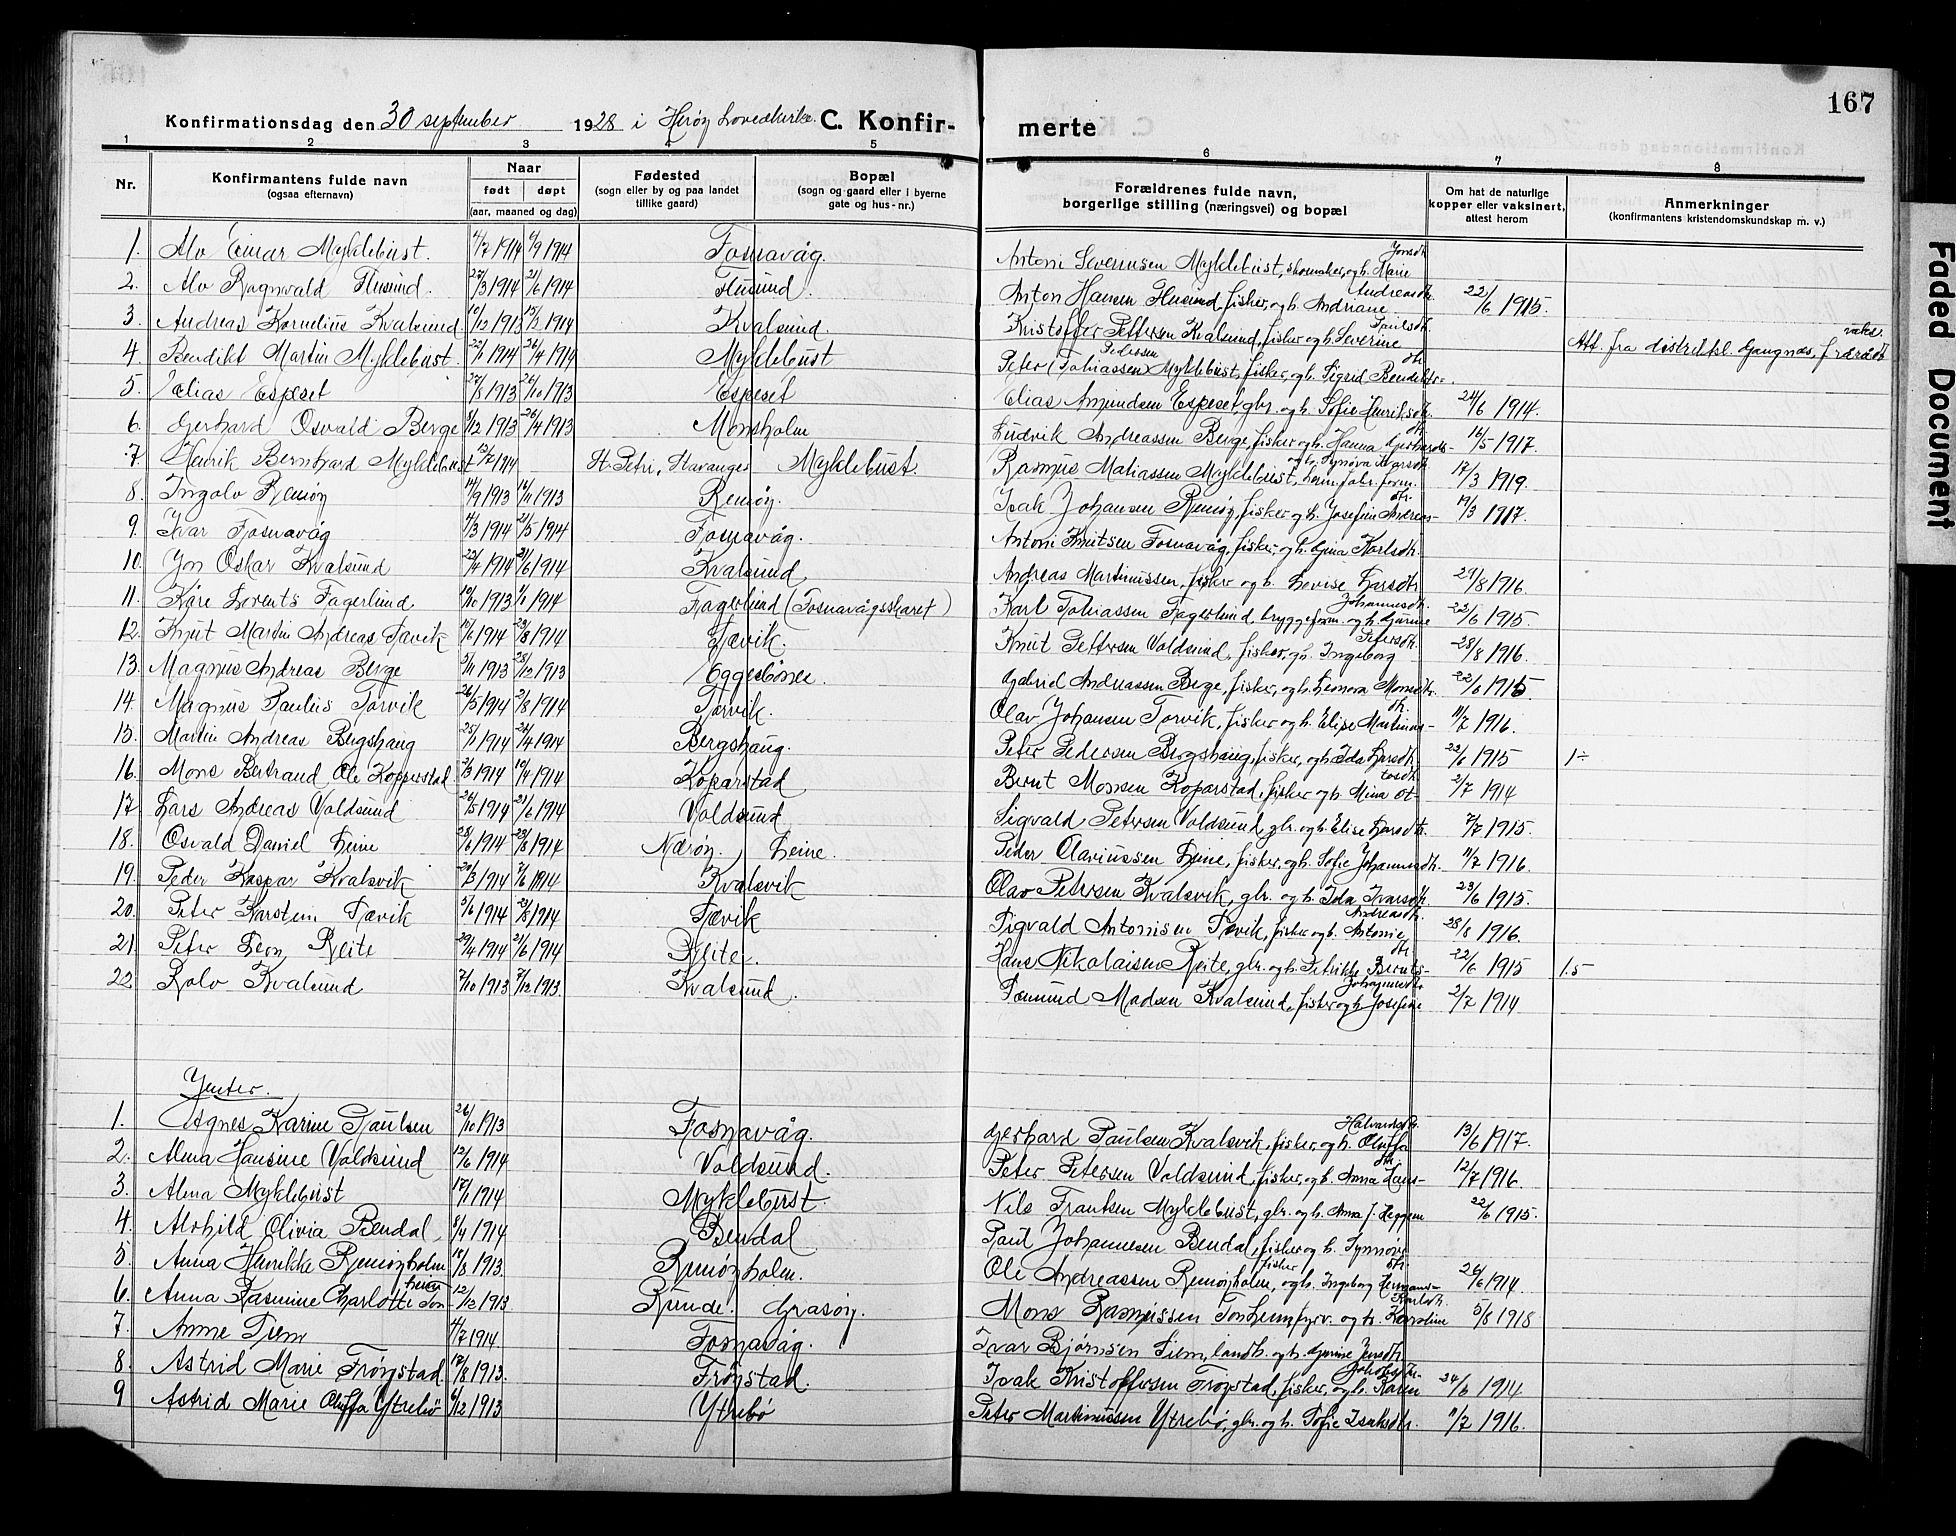 167
Konfirmationsdag den 30 september 1928 i Herøy hovedkirke. C. Konfir- merte
1 2 3 4 5 6 7 8
Nr. Konfirmantens fulde navn (ogsaa efternavn) Naar født døpt (aar, maaned og dag) Fødested (sogn eller by og paa landet tillike gaard) Bopæl (sogn og gaard eller i byerne gate og hus-nr.) Forældrenes fulde navn, borgerlige stilling (næringsvei) og bopæl Om hat de naturlige kopper eller vaksinert, attest herom Anmerkninger (konfirmantens kristendomskundskap m. v.)
1. Alv Einar Myklebust. 4/7 1914 6/9 1914 Fosnavåg. Antoni Severinsen Myklebust, skomaker, og h. Marie Jonsdtr.
2. Alv Ragnvald Husund. 27/3 1914 21/6 1914 Husund. Anton Hansen Husund, fisker, og h. Andriane Andreasdtr. 22/6 1915.
3. Andreas Kornelius Kvalsund. 10/12 1913 15/2 1914 Kvalsund. Kristoffer Pettersen Kvalsund, fisker og h. Severine Paulsdtr.
4. Bendikt Martin Myklebust. 22/1 1914 26/4 1914 Myklebust Peter (Tobiassen) Pedersen Myklebust, fisker, og h. Sigrid Bendiktsdtr. Att. fra distriktsl. Gangnæs, f. vaks.
5. Elias Espeset 27/8 1913 26/10 1913 Espeset Elias Amundsen Espeset, gbr. og h. Sofie Henriksdtr. 24/6 1914.
6. Gerhard Osvald Berge 5/12 1913 26/4 1913 Monsholm Ludvik Andreassen Berge, fisker og h. Hanna Gerhardsdtr. 16/5 1917.
7. Henrik Bernhard Myklebust 13/7 1914 St. Petri, Stavanger Myklebust. Rasmus Matiassen Myklebust, herm.fabr. form. og h. Synøva Ivarsdtr. 17/3 1919.
8. Ingolv Remøy 14/9 1913 16/11 1913 Remøy. Isak Johansen Remøy, fisker og h. Josefine Andreasdtr. 19/3 1917.
9. Ivar Fosnavåg 4/3 1914 21/5 1914 Fosnavåg. Antoni Knutsen Fosnavåg, fisker, og h. Gina Karlsdtr.
10. Jon Oskar Kvalsund 22/4 1914 21/6 1914 Kvalsund Andreas Martinussen, fisker og h. Lovise Larsdtr. 29/8 1916.
11. Kåre Lorents Fagerlund 19/10 1913 1/1 1914 Fagerlund (Fosnavågsskaret) Karl Tobiassen Fagerlund, bryggeform. og h. Gurine Johannesdtr. 22/6 1915.
12. Knut Martin Andreas Tævik 15/6 1914 23/8 1914 Tævik. Knut Pettersen Voldsund, fisker, og h. Ingeborg Petersdtr. 28/8 1916.
13. Magnus Andreas Berge 5/11 1913 28/12 1913 Eggesbønes. Gabriel Andreassen Berge, fisker, og h. Leonora Monsdtr. 22/6 1915.
14. Magnus Paulus Torvik 26/5 1914 2/8 1914 Torvik. Olav Johansen Torvik, fisker og h. Elise Martinusdtr. 11/7 1916.
15. Martin Andreas Bergshaug 25/1 1914 26/4 1914 Bergshaug. Peter Pedersen Bergshaug, fisker, og h. Ida Larsdtr. 22/6 1915 1-
16. Mons Bertrand Ole Kopperstad 2/3 1914 19/4 1914 Koparstad Bernt Monsen Koparstad, fisker og h. Mina Ottosdtr. 2/7 1914
17. Lars Andreas Voldsund 26/5 1914 21/6 1914 Voldsund Sigvald Petersen Voldsund, gbr. og h. Elise Larsdtr. 7/7 1915.
18. Osvald Daniel Leine 28/6 1914 23/8 1914 Nærøy. Leine. Peder Clariussen Leine, fisker, og h. Sofie Johannesdtr. 11/7 1916.
19. Peder Kaspar Kvalsvik 20/3 1914 7/6 1914 Kvalsvik Olav Petersen Kvalsvik, gbr. og h. Ida Ivarsdtr. 23/6 1915.
20. Peter Karstein Tævik 5/6 1914 23/8 1914 Tævik Sigvald Antonisen Tævik, fisker og h. Antonie Andreasdtr. 28/8 1916.
21. Peter Leon Reite 29/4 1914 21/6 1914 Reite. Hans Nikolaisen Reite, gbr. og h. Petrikke Berntsdtr. 22/6 1915 1.5-
22. Rolv Kvalsund 7/10 1913 7/12 1913. Kvalsund. Sæmund Madsen Kvalsund, fisker og h. Josefine Johannesdtr. 2/7 1914
Jenter.
1. Agnes Karine Paulsen 26/10 1913 Fosnavåg. Gerhard Paulsen Kvalsvik, fisker, og h. Oluffa Halvardsdtr. 13/6 1917.
2. Alma Hansine Voldsund 13/6 1914 Voldsund. Peter Petersen Voldsund, fisker, og h. Anna Hansdtr. 12/7 1916.
3. Alma Myklebust 17/1 1914 Myklebust Nils Frantsen Myklebust, gbr. og h. Anna f. Heggem 22/6 1915.
4. Alvhild Olivia Bendal 8/4 1914 Bendal Paul Johannesen Bendal, fisker og h. Synnøve
5. Anna Henrikke Remøyholm 18/8 1913. Remøyholm. Ole Andreassen Remøyholm, fisker og h. Ingeborg Hermansdtr. 26/6 1914
6. Anna Rasmine Charlotte Tonheim 12/12 1913 Runde. Grasøy. Mons Rasmussen Tonheim, fyrv. og h. Karoline Karlsdtr. 5/8 1918
7. Anne Tiem 4/7 1914 Fosnavåg. Ivar Bjørnsen Tiem, landh. og h. Gurine Jensdtr.
8. Astrid Marie Frøystad 17/8 1913. Frøystad. Isak Kristoffersen Frøystad, fisker, og h. Karen Jakobsdtr. 24/6 1914
9 Astrid Marie Oluffa Ytrebø 6/12 1913 Ytrebø Peter Martinussen Ytrebø, gbr. og h. Sofie Isaksdtr. 11/7 1916.
Faded Document